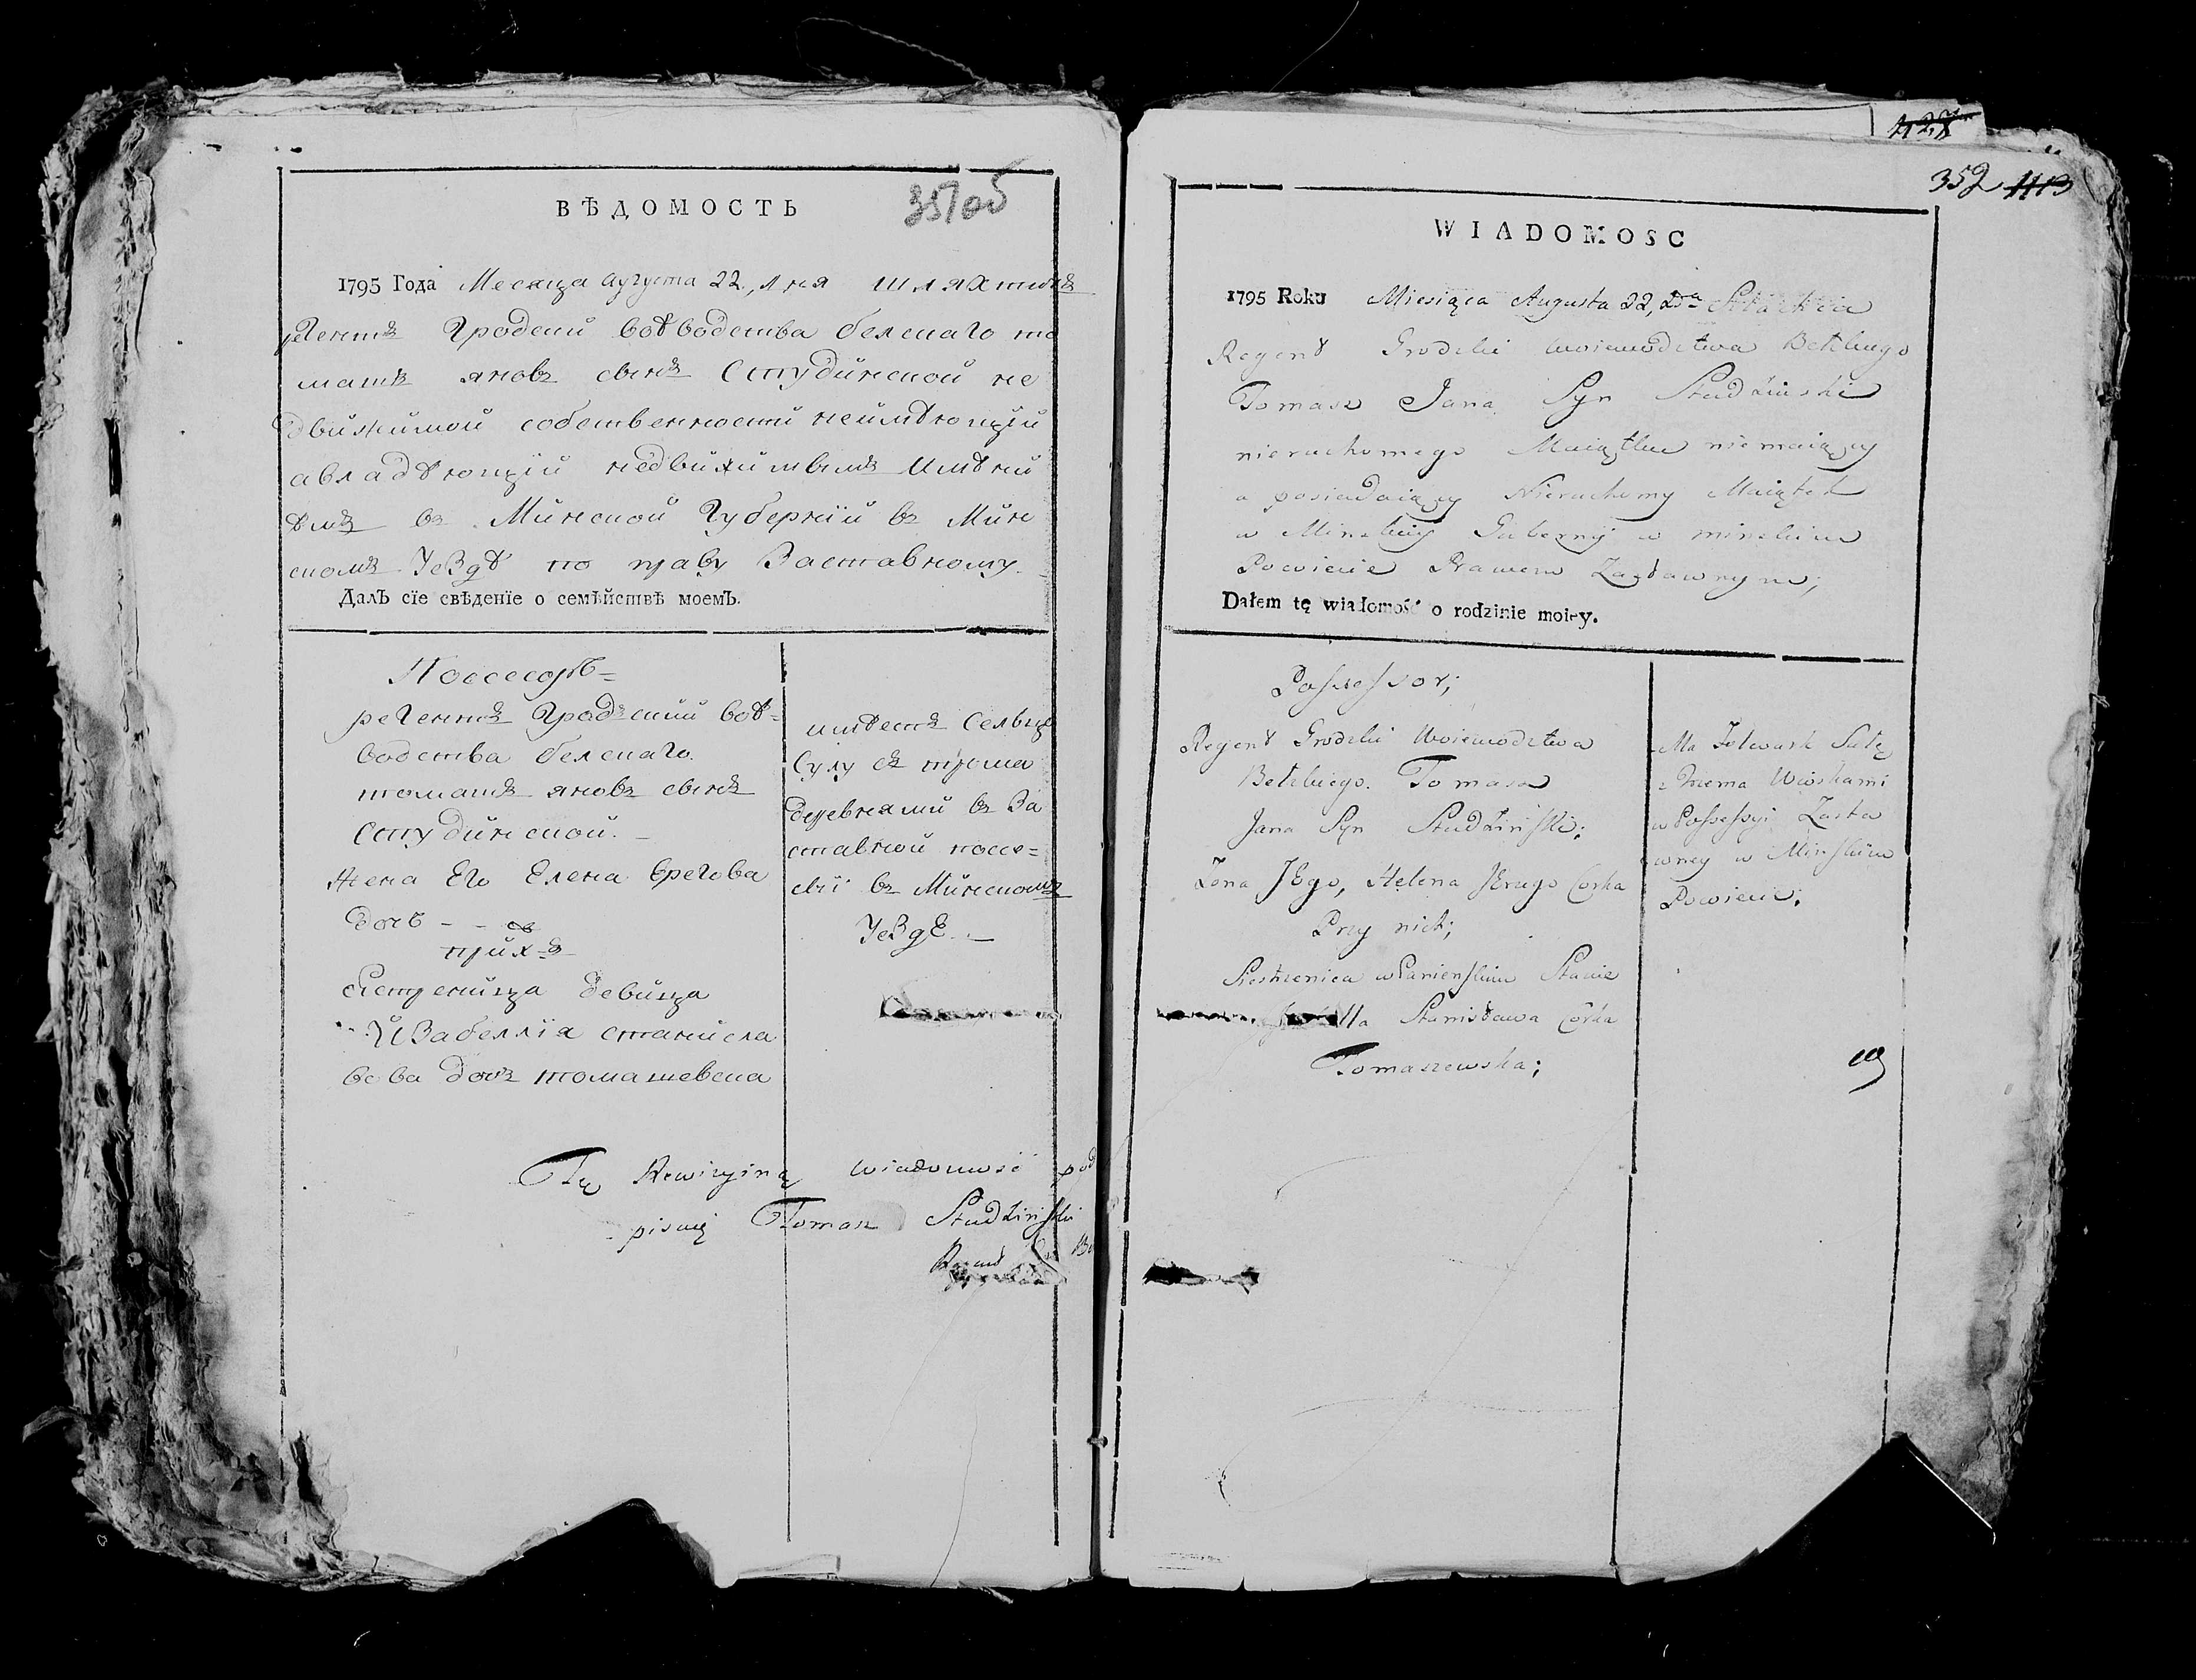 ВѢДОМОСТЬ
351об
1795 Года Месяца августа 22, дня шляхтичъ
регентъ Гродскй воѣводства белскаго то
машъ яновъ сынъ Студзинской не
движимой собственности неимѣющiй
авладѣющiй недвижимымъ имѣнй
ѣмъ въ Минской Губернiи въ Мин
скомъ Уездѣ по праву Заставному
ДалЪ сiе свѣденiе о семѣйствѣ моемЪ.
Поссесоръ=
регентъ Градскии воѣ=
водства белскаго.
томашъ яновъ сынъ
Студинской.
Жена Его Елена Ерегова
дочь - -
при хъ
сестреница девица
Изабеллiя станисла
вова дочь томашевска
имѣетъ Сельцо
Сулу съ трома
деревнями въ за
ставной поссе=
сиi въ Минскомъ
Уезде
Tę Rewizyiną Wiadomość pod
pisuię Tomasz Studziński
Regent
428
352 413
WIADOMOSC
1795 Roku Miesiąca Augusta 22, Szlachcic
Regent Grodzki Woiewodztwa Bełzkiego
Tomasz Jana Syn Studziński
nieruchomego Maiątku niemaiący
a posiadaiący Nieruchomy Maiątek
w Minskiey Gubernij w minskim
Powiecie Prawem Zastawnym;
Dałem tę wiadomość o rodzinie moiey.
Possessor;
Regent Grodzki Woiewodztwa
Bełzkiego. Tomasz
Jana Syn Studziński;
Żona JEgo, Helena JErzego Corka
Przy nich;
Siestrzenica w Panieńskim Stanie
lla Stanisława Córka
Tomaszewska;
Ma Folwark Sułę
z Trzema Wioskami
w Possessyi Zasta
wney w Mińskim
Powiecie;